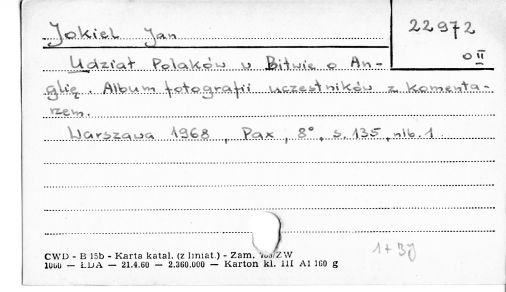 Jokiel Jan
22972
O II
Udział Polaków w Bitwie o An-
glię. Album fotografii uczestników z komenta-
rzem.
Warszawa 1968, Pax, 8°, s. 135, nlb. 1
CWD - B 15b - Karta katal. (z liniat.) - Zam. ZW
1000 — LDA — 21.4.60 — 2.360.000 — Karton kl. III A1 160 g